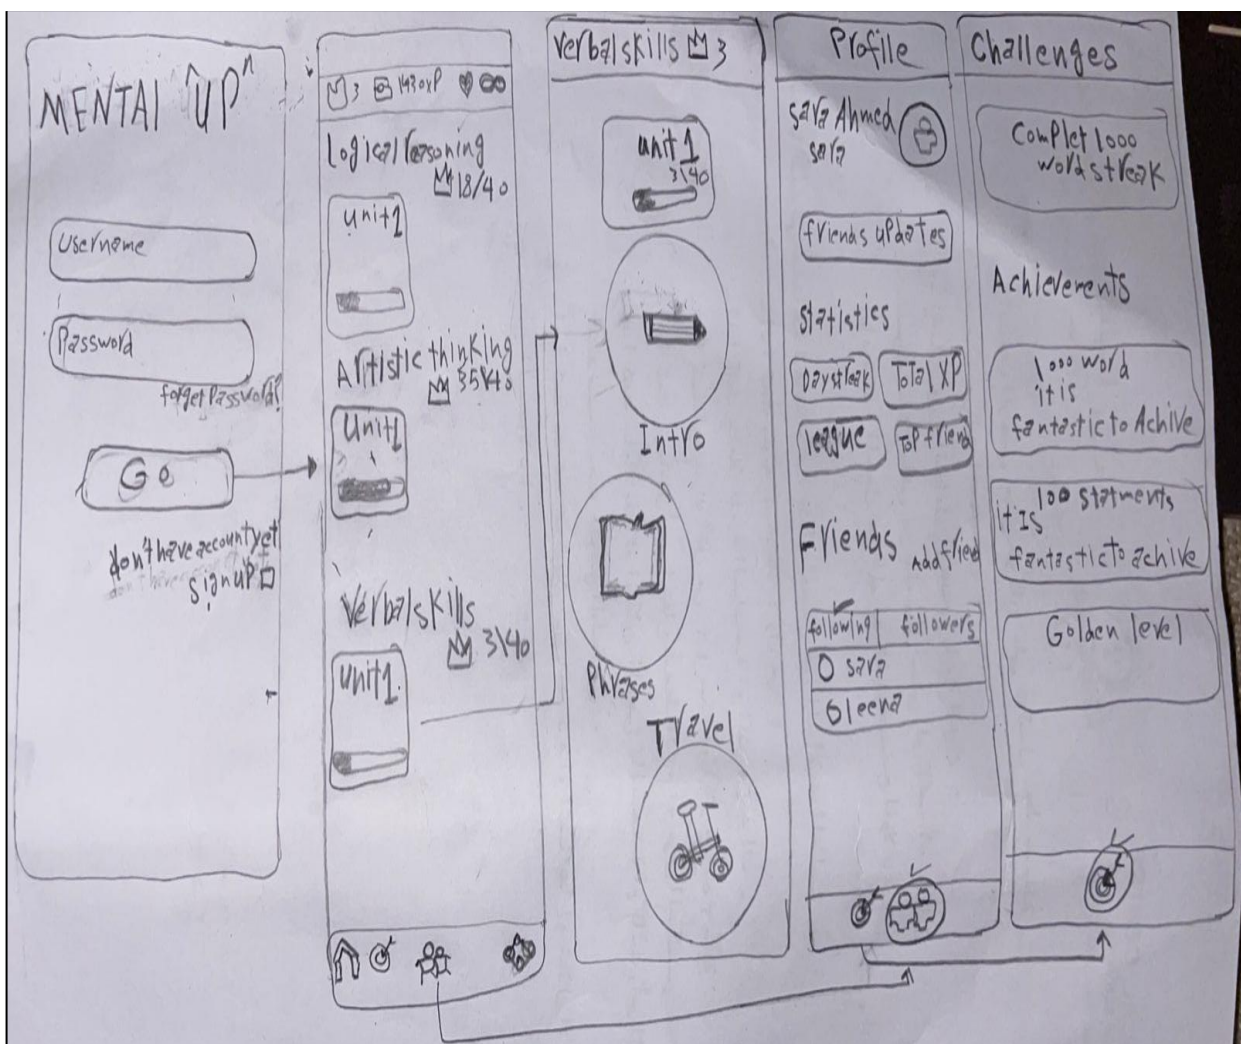 MENTAL UP
Username
Password
forget Password?
GO
don't have account yet
sign up
3 1430 XP
Logical reasoning
18/40
unit1
Artistic thinking
35\40
Unit1
Verbal skills
3\40
Unit1
Verbal skills 3
unit 1
3\40
Intro
Phrases
Travel
Profile
sara Ahmed
sara
friends updates
statistics
Day streak
Total XP
league
Top friend
Friends
Add friend
following
followers
sara
leena
Challenges
Complet 1000
word streak
Achievements
1000 word
it is
fantastic to Achive
100 statments
it is
fantastic to achive
Golden level